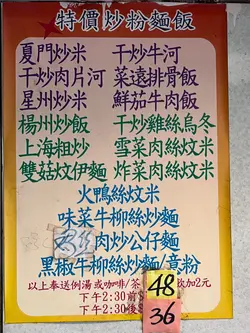 特價炒粉麵飯
夏門炒米 干炒牛河
干炒肉片河 菜遠排骨飯
星州炒米 鮮茄牛肉飯
楊州炒飯 干炒雞絲烏冬
上海粗炒 雪菜肉絲炆米
雙菇炆伊麵 炸菜肉絲炆米
火鴨絲炆米
味菜牛柳絲炒麵
肉炒公仔麵
黑椒牛柳絲炒麵/意粉
以上奉送例湯或咖啡/茶 飲加2元
下午2:30前 48
下午2:30後 36